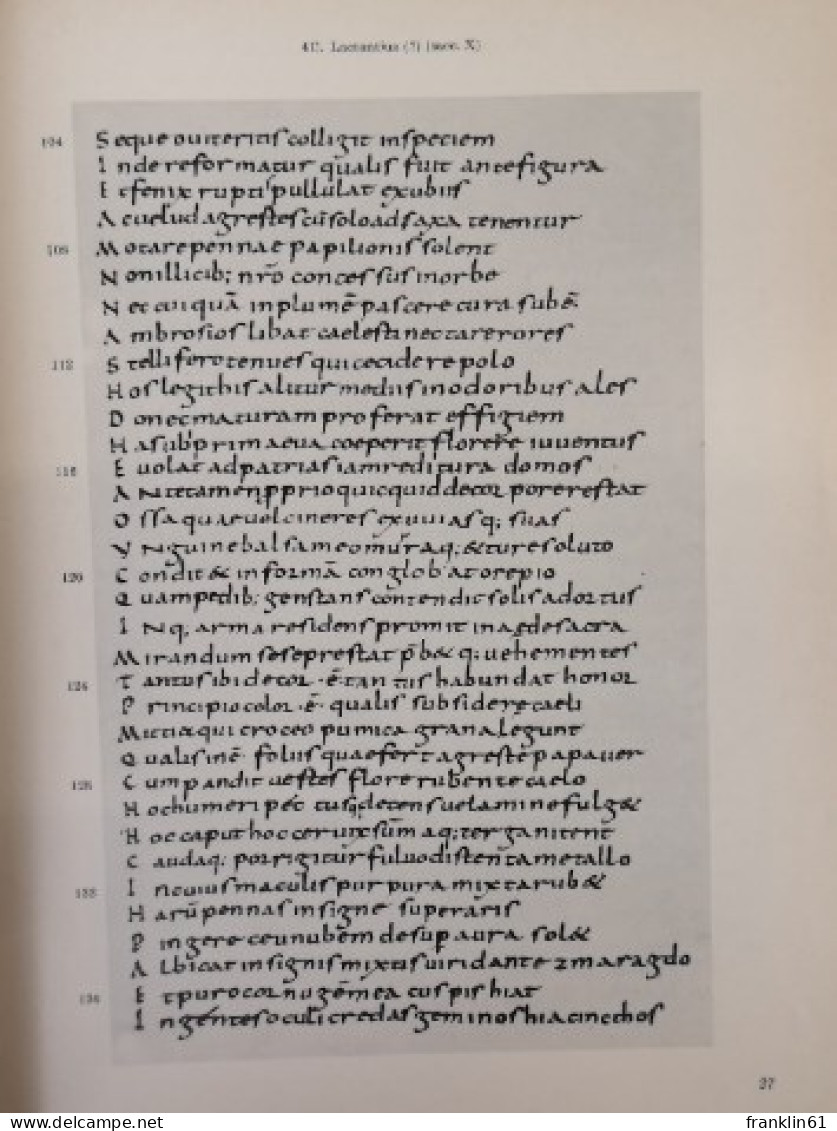 41. Lactantius (?) (saec. X)
104 Seque ouiteritis colligit inspeciem
Inde reformatur qualis fuit antefigura
Et fenix rupti pullulat exubiis
Ac uelud agrestes cū solo ad saxa tenentur
108 Motare pennae papilionis solent
Non illi cib; nr̄o concessus inorbe
Nec cuiquā inplumē pascere cura sub ē
Ambrosios libat caelesti nectare rores
112 Stellifero tenues qui cecidere polo
Hos legit his alitur mediis inodoribus ales
Donec maturam proferat effigiem
Ha sub primaeua coeperit florere iuuentus
116 Euolat ad patrias iam reditura domos
Ante tamen pprio quicquid decor pore restat
Ossa quae uel cineres exuuias q; suas
Vnguine balsameo murraq; & ture soluto
120 Condit & in formā conglobat ore pio
Quam pedib; genstans contendit solis adortus
Inq; arma residens promit inaede sacra
Mirandum sese prestat p̄b& q; uehementes
124 Tantus ibi decor ·ē· tantus habundat honor
Principio color ·ē· qualis subsidere caeli
Mitia qui croceo pumica grana legunt
Qualis inē foliis quae fert agreste papauer
128 Cum pandit uestes flore rubente caelo
Hoc humeri pect tusq; decens uelamine fulg&
Hoc caput hoc ceruix sūmaq; terga nitent
Caudaq; porrigitur fuluo distenta metallo
132 In cuius maculis purpura mixta rub&
Harū pennas insigne superaris
Pingere ceu nubem desup aura sol&
Albicat insignis mixtus uiridante zmaragdo
136 Et puro cornu gēmea cuspis hiat
Ingentes oculi credas geminos hiacincthos
27
franklin61